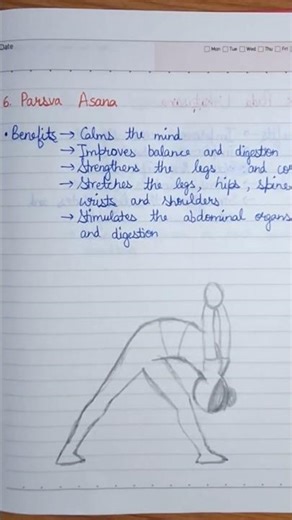 Date
Mon Tue Wed Thu Fri
6. Parsva Asana
• Benefits → Calms the mind
→ Improves balance and digestion
→ Strengthens the legs and co
→ Stretches the legs, hips, spine
wrists and shoulders
→ Stimulates the abdominal organs
and digestion